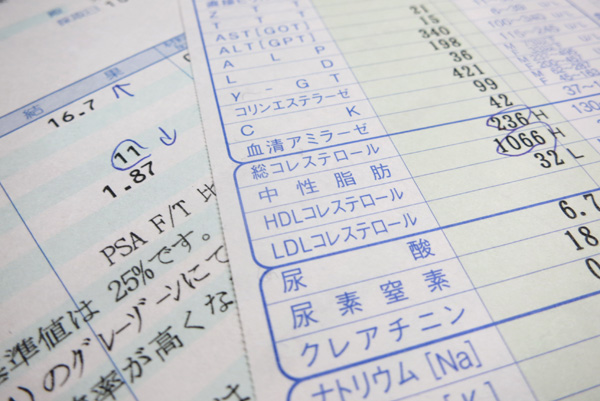 結 果
16.7
11
1.87
PSA F/T 比
25%です。
準値は
のグレーゾーンにて
率が高くな
T T
AST[GOT] 21
ALT[GPT] 15
A L P 340
L D 198
γ-GT 36
コリンエステラーゼ 421
C K 99
血清アミラーゼ 42
総コレステロール 236 H
中性脂肪 1066 H
HDLコレステロール 32 L
LDLコレステロール
尿酸 6.7
尿素窒素 18
クレアチニン 0
ナトリウム[Na]
[K]